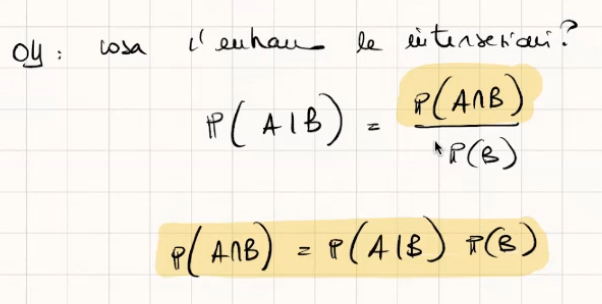 oy: cosa c'entrano le intersezioni?
P(A|B) = P(A∩B) / P(B)
P(A∩B) = P(A|B) P(B)